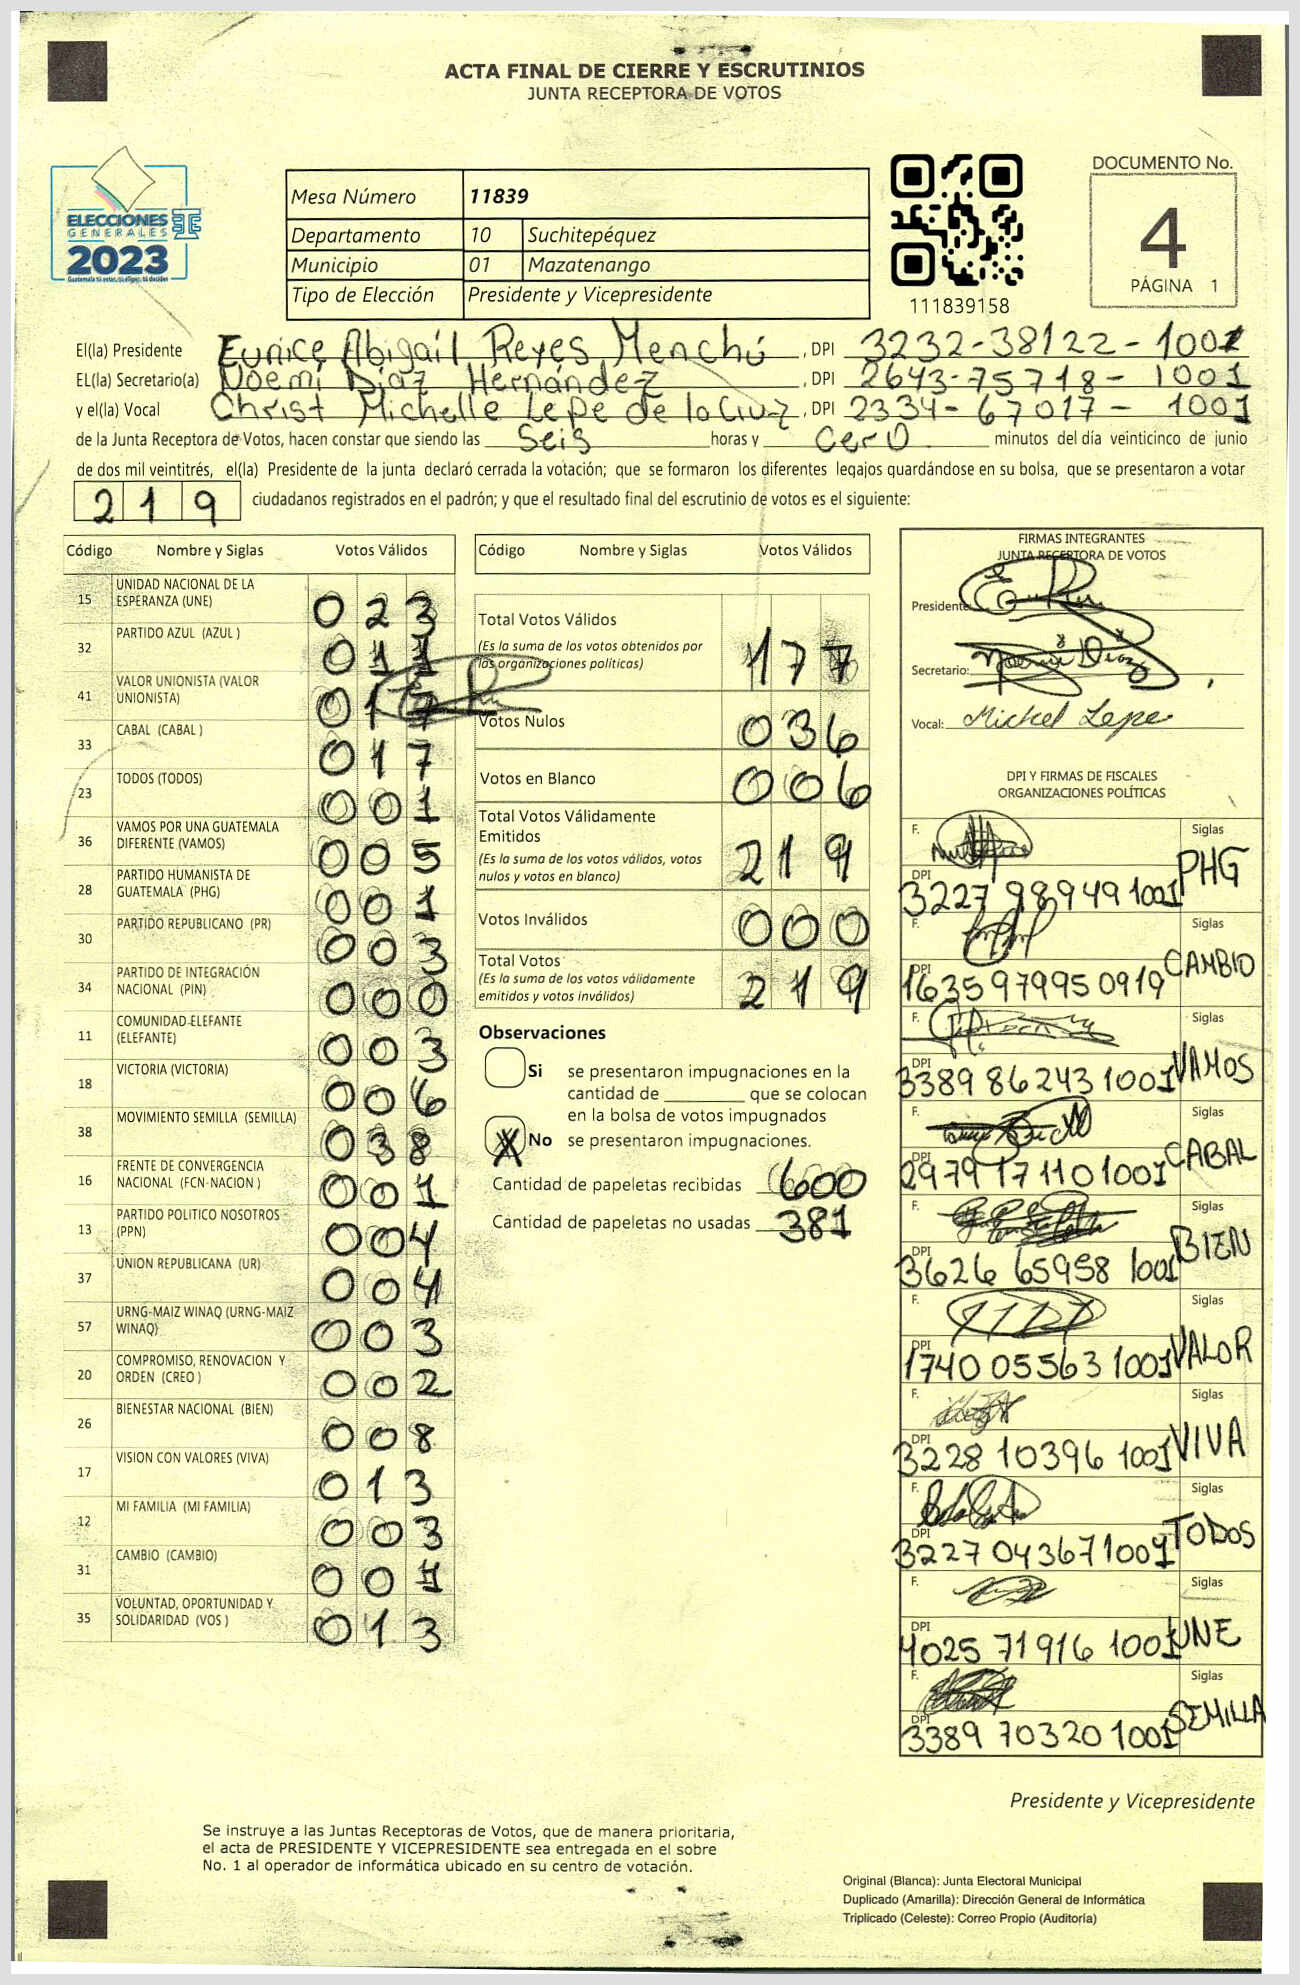 ACTA FINAL DE CIERRE Y ESCRUTINIOS
JUNTA RECEPTORA DE VOTOS
ELECCIONES
GENERALES
2023
Mesa Número 11839
Departamento 10 Suchitepéquez
Municipio 01 Mazatenango
Tipo de Elección Presidente y Vicepresidente
111839158
DOCUMENTO No.
4
PÁGINA 1
El(la) Presidente Eunice Abigaíl Reyes Menchú, DPI 3232-38122-1001
EL(la) Secretario(a) Noemí Díaz Hernández, DPI 2643-75718-1001
y el(la) Vocal Christ Michelle Lepe de la Cruz, DPI 2334-67017-1001
de la Junta Receptora de Votos, hacen constar que siendo las Seis horas y cero minutos del día veinticinco de junio
de dos mil veintitrés, el(la) Presidente de la junta declaró cerrada la votación; que se formaron los diferentes legajos quardándose en su bolsa, que se presentaron a votar
219 ciudadanos registrados en el padrón; y que el resultado final del escrutinio de votos es el siguiente:
Código Nombre y Siglas Votos Válidos
15 UNIDAD NACIONAL DE LA ESPERANZA (UNE) 023
32 PARTIDO AZUL (AZUL ) 011
41 VALOR UNIONISTA (VALOR UNIONISTA) 017
33 CABAL (CABAL ) 017
23 TODOS (TODOS) 001
36 VAMOS POR UNA GUATEMALA DIFERENTE (VAMOS) 005
28 PARTIDO HUMANISTA DE GUATEMALA (PHG) 001
30 PARTIDO REPUBLICANO (PR) 003
34 PARTIDO DE INTEGRACIÓN NACIONAL (PIN) 000
11 COMUNIDAD ELEFANTE (ELEFANTE) 003
18 VICTORIA (VICTORIA) 006
38 MOVIMIENTO SEMILLA (SEMILLA) 038
16 FRENTE DE CONVERGENCIA NACIONAL (FCN-NACION ) 001
13 PARTIDO POLITICO NOSOTROS (PPN) 004
37 UNION REPUBLICANA (UR) 004
57 URNG-MAIZ WINAQ (URNG-MAIZ WINAQ) 003
20 COMPROMISO, RENOVACION Y ORDEN (CREO ) 002
26 BIENESTAR NACIONAL (BIEN) 008
17 VISION CON VALORES (VIVA) 013
12 MI FAMILIA (MI FAMILIA) 003
31 CAMBIO (CAMBIO) 001
35 VOLUNTAD, OPORTUNIDAD Y SOLIDARIDAD (VOS ) 013
Código Nombre y Siglas Votos Válidos
Total Votos Válidos 177
(Es la suma de los votos obtenidos por
las organizaciones politicas)
Votos Nulos 036
Votos en Blanco 006
Total Votos Válidamente
Emitidos 219
(Es la suma de los votos válidos, votos
nulos y votos en blanco)
Votos Inválidos 000
Total Votos 219
(Es la suma de los votos válidamente
emitidos y votos inválidos)
Observaciones
Si se presentaron impugnaciones en la
cantidad de ________ que se colocan
en la bolsa de votos impugnados
X No se presentaron impugnaciones.
Cantidad de papeletas recibidas 600
Cantidad de papeletas no usadas 381
FIRMAS INTEGRANTES
JUNTA RECEPTORA DE VOTOS
Presidente:
Secretario: Noemí Díaz
Vocal: Michel Lepe
DPI Y FIRMAS DE FISCALES
ORGANIZACIONES POLÍTICAS
F. Siglas PHG
DPI 3227 98949 1001
F. Siglas CAMBIO
DPI 1635 97995 0919
F. Siglas VAMOS
DPI 3389 86243 1001
F. Siglas CABAL
DPI 2979 17110 1001
F. Siglas BIEN
DPI 3626 65958 1001
F. Siglas VALOR
DPI 1740 05563 1001
F. Siglas VIVA
DPI 3228 10396 1001
F. Siglas TODOS
DPI 3227 04367 1001
F. Siglas UNE
DPI 4025 71916 1001
F. Siglas SEMILLA
DPI 3389 70320 1001
Presidente y Vicepresidente
Se instruye a las Juntas Receptoras de Votos, que de manera prioritaria,
el acta de PRESIDENTE Y VICEPRESIDENTE sea entregada en el sobre
No. 1 al operador de informática ubicado en su centro de votación.
Original (Blanca): Junta Electoral Municipal
Duplicado (Amarilla): Dirección General de Informática
Triplicado (Celeste): Correo Propio (Auditoría)